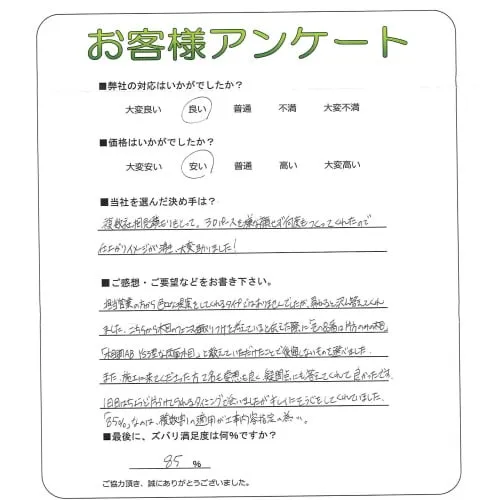 お客様アンケート
■弊社の対応はいかがでしたか？
大変良い 良い 普通 不満 大変不満
■価格はいかがでしたか？
大変安い 安い 普通 高い 大変高い
■当社を選んだ決め手は？
複数社相見積もりをとって、3Dパースを嫌な顔せず何度もつくってくれたので
仕上がりイメージが湧き、大変助かりました！
■ご感想・ご要望などをお書き下さい。
担当営業の方から色々な提案をしてくれるタイプではありませんでしたが、尋ねると答えてくれ
ました。こちらから
と教えていただけたことで後悔しないもので選べました。
また、施工に来てくださった方々も愛想も良く、疑問点にも答えてくれて良かったです。
1日目はちらりと片づけてられるタイミングで会いましたがキレイにそうじをしてくれていました。
「85%」なのは、複数割の適用が工事内容指定の為…。
■最後に、ズバリ満足度は何%ですか？
85 %
ご協力頂き、誠にありがとうございました。